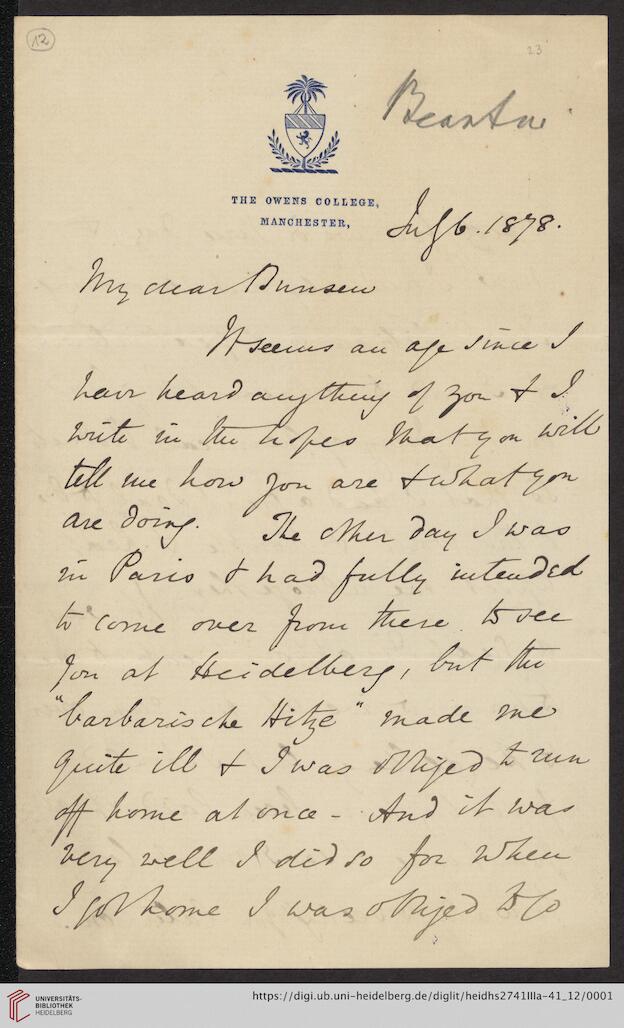 12
23
THE OWENS COLLEGE,
MANCHESTER,
July 6. 1878.
My dear Bunsen
It seems an age since I
have heard anything of you & I
write in the hopes that you will
tell me how you are & what you
are doing. The other day I was
in Paris & had fully intended
to come over from there to see
you at Heidelberg, but the
"barbarische Hitze" made me
quite ill & I was obliged to run
off home at once - And it was
very well I did so for when
I got home I was obliged to go
UNIVERSITÄTS-
BIBLIOTHEK
HEIDELBERG
https://digi.ub.uni-heidelberg.de/diglit/heidhs2741IIIa-41_12/0001